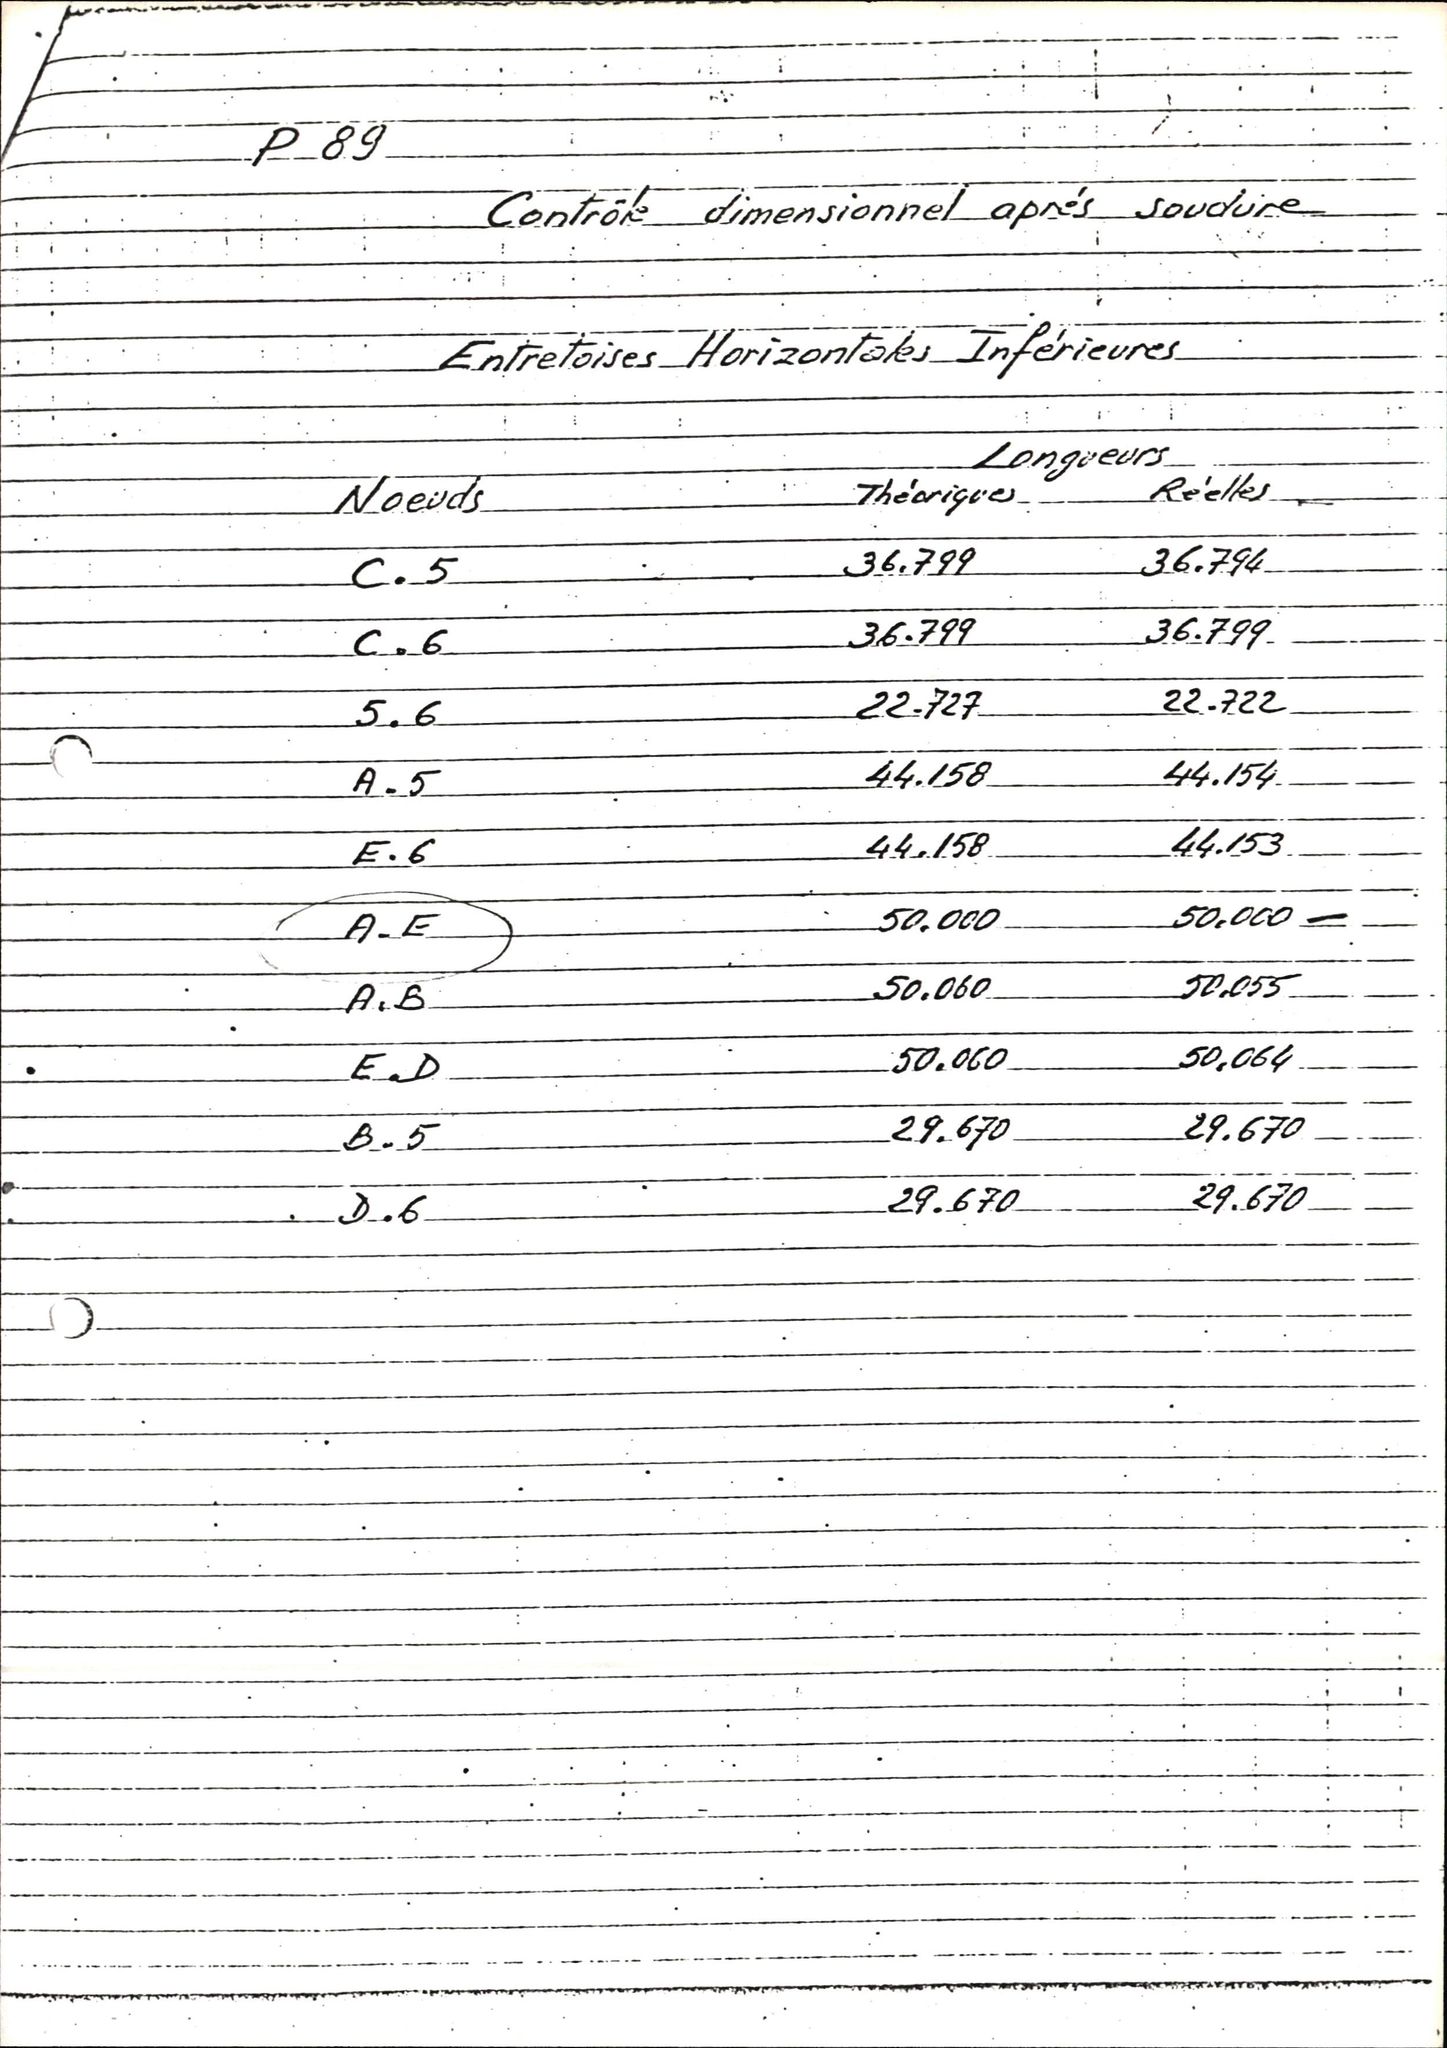 P 89
Contrôle dimensionnel aprés soudure
Entretoises Horizontales Inférieures
Longueurs
Noeuds Théoriques Réelles
C.5 36.799 36.794
C.6 36.799 36.799
5.6 22.727 22.722
A.5 44.158 44.154
E.6 44.158 44.153
A-E 50.000 50.000 -
A.B 50.060 50.055
E.D 50.060 50.064
B.5 29.670 29.670
D.6 29.670 29.670